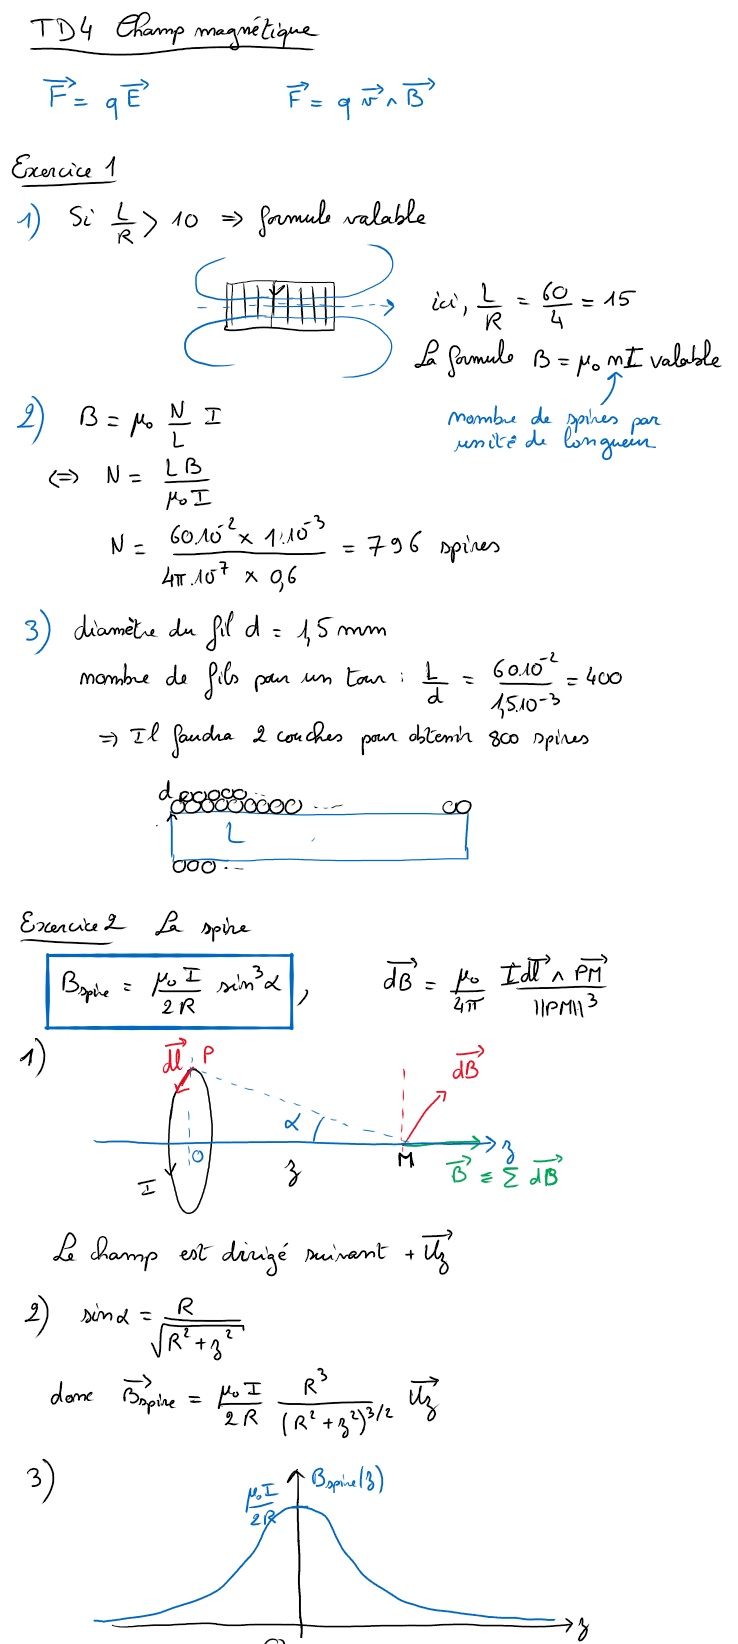 TD4 Champ magnétique
F⃗ = qE⃗    F⃗ = q v⃗ ∧ B⃗
Exercice 1
1) Si L/R > 10 ⇒ formule valable
ici, L/R = 60/4 = 15
La formule B = μ₀ n I valable
nombre de spires par
unité de longueur
2) B = μ₀ N/L I
⇔ N = LB/μ₀I
N = 60.10⁻² × 1.10⁻³ / 4π.10⁻⁷ × 0,6 = 796 spires
3) diamètre du fil d = 1,5 mm
nombre de fils par un tour : L/d = 60.10⁻²/1,5.10⁻³ = 400
⇒ Il faudra 2 couches pour obtenir 800 spires
d
...
L
...
Exercice 2 La spire
B_spire = μ₀I/2R sin³α , dB⃗ = μ₀/4π Idl⃗ ∧ PM⃗ / ||PM||³
1)
dl⃗ P dB⃗
α
O z M z
I B⃗ = Σ dB⃗
Le champ est dirigé suivant + U⃗z
2) sinα = R/√(R² + z²)
donc B⃗_spire = μ₀I/2R R³/(R² + z²)^3/2 U⃗z
3)
μ₀I/2R B_spire(z)
z